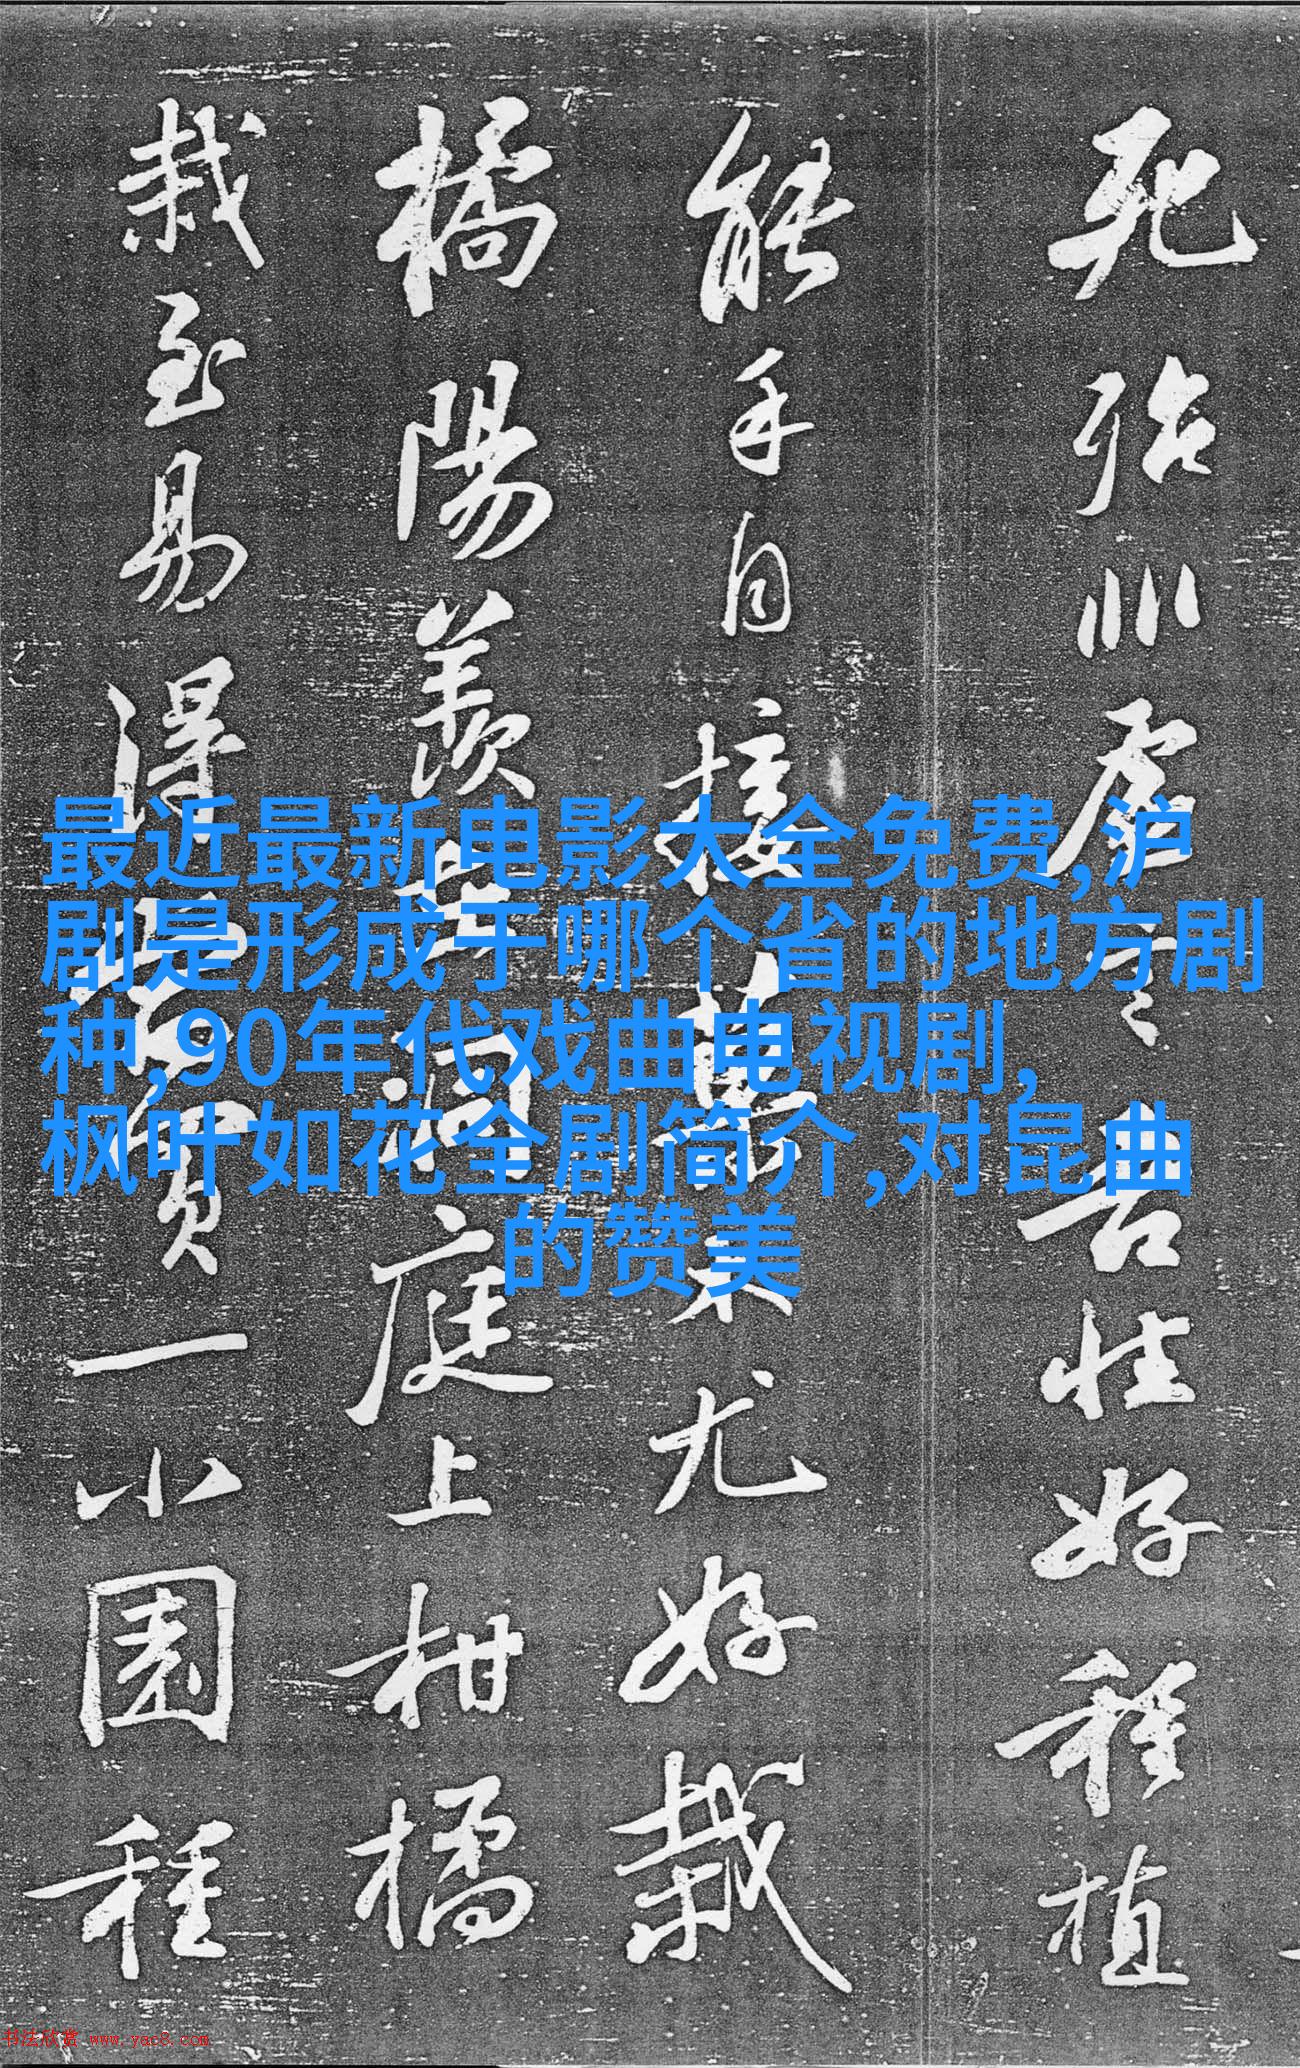 死殆非虚言吾性好種植
能手自接菓木尤好栽
橘陽羨在洞庭上柑橘
栽至易得當買一小園種
最近最新电影大全免费,沪
剧是形成于哪个省的地方剧
种,90年代戏曲电视剧,
枫叶如花全剧简介,对昆曲
的赞美
书法欣赏 www.yac8.com